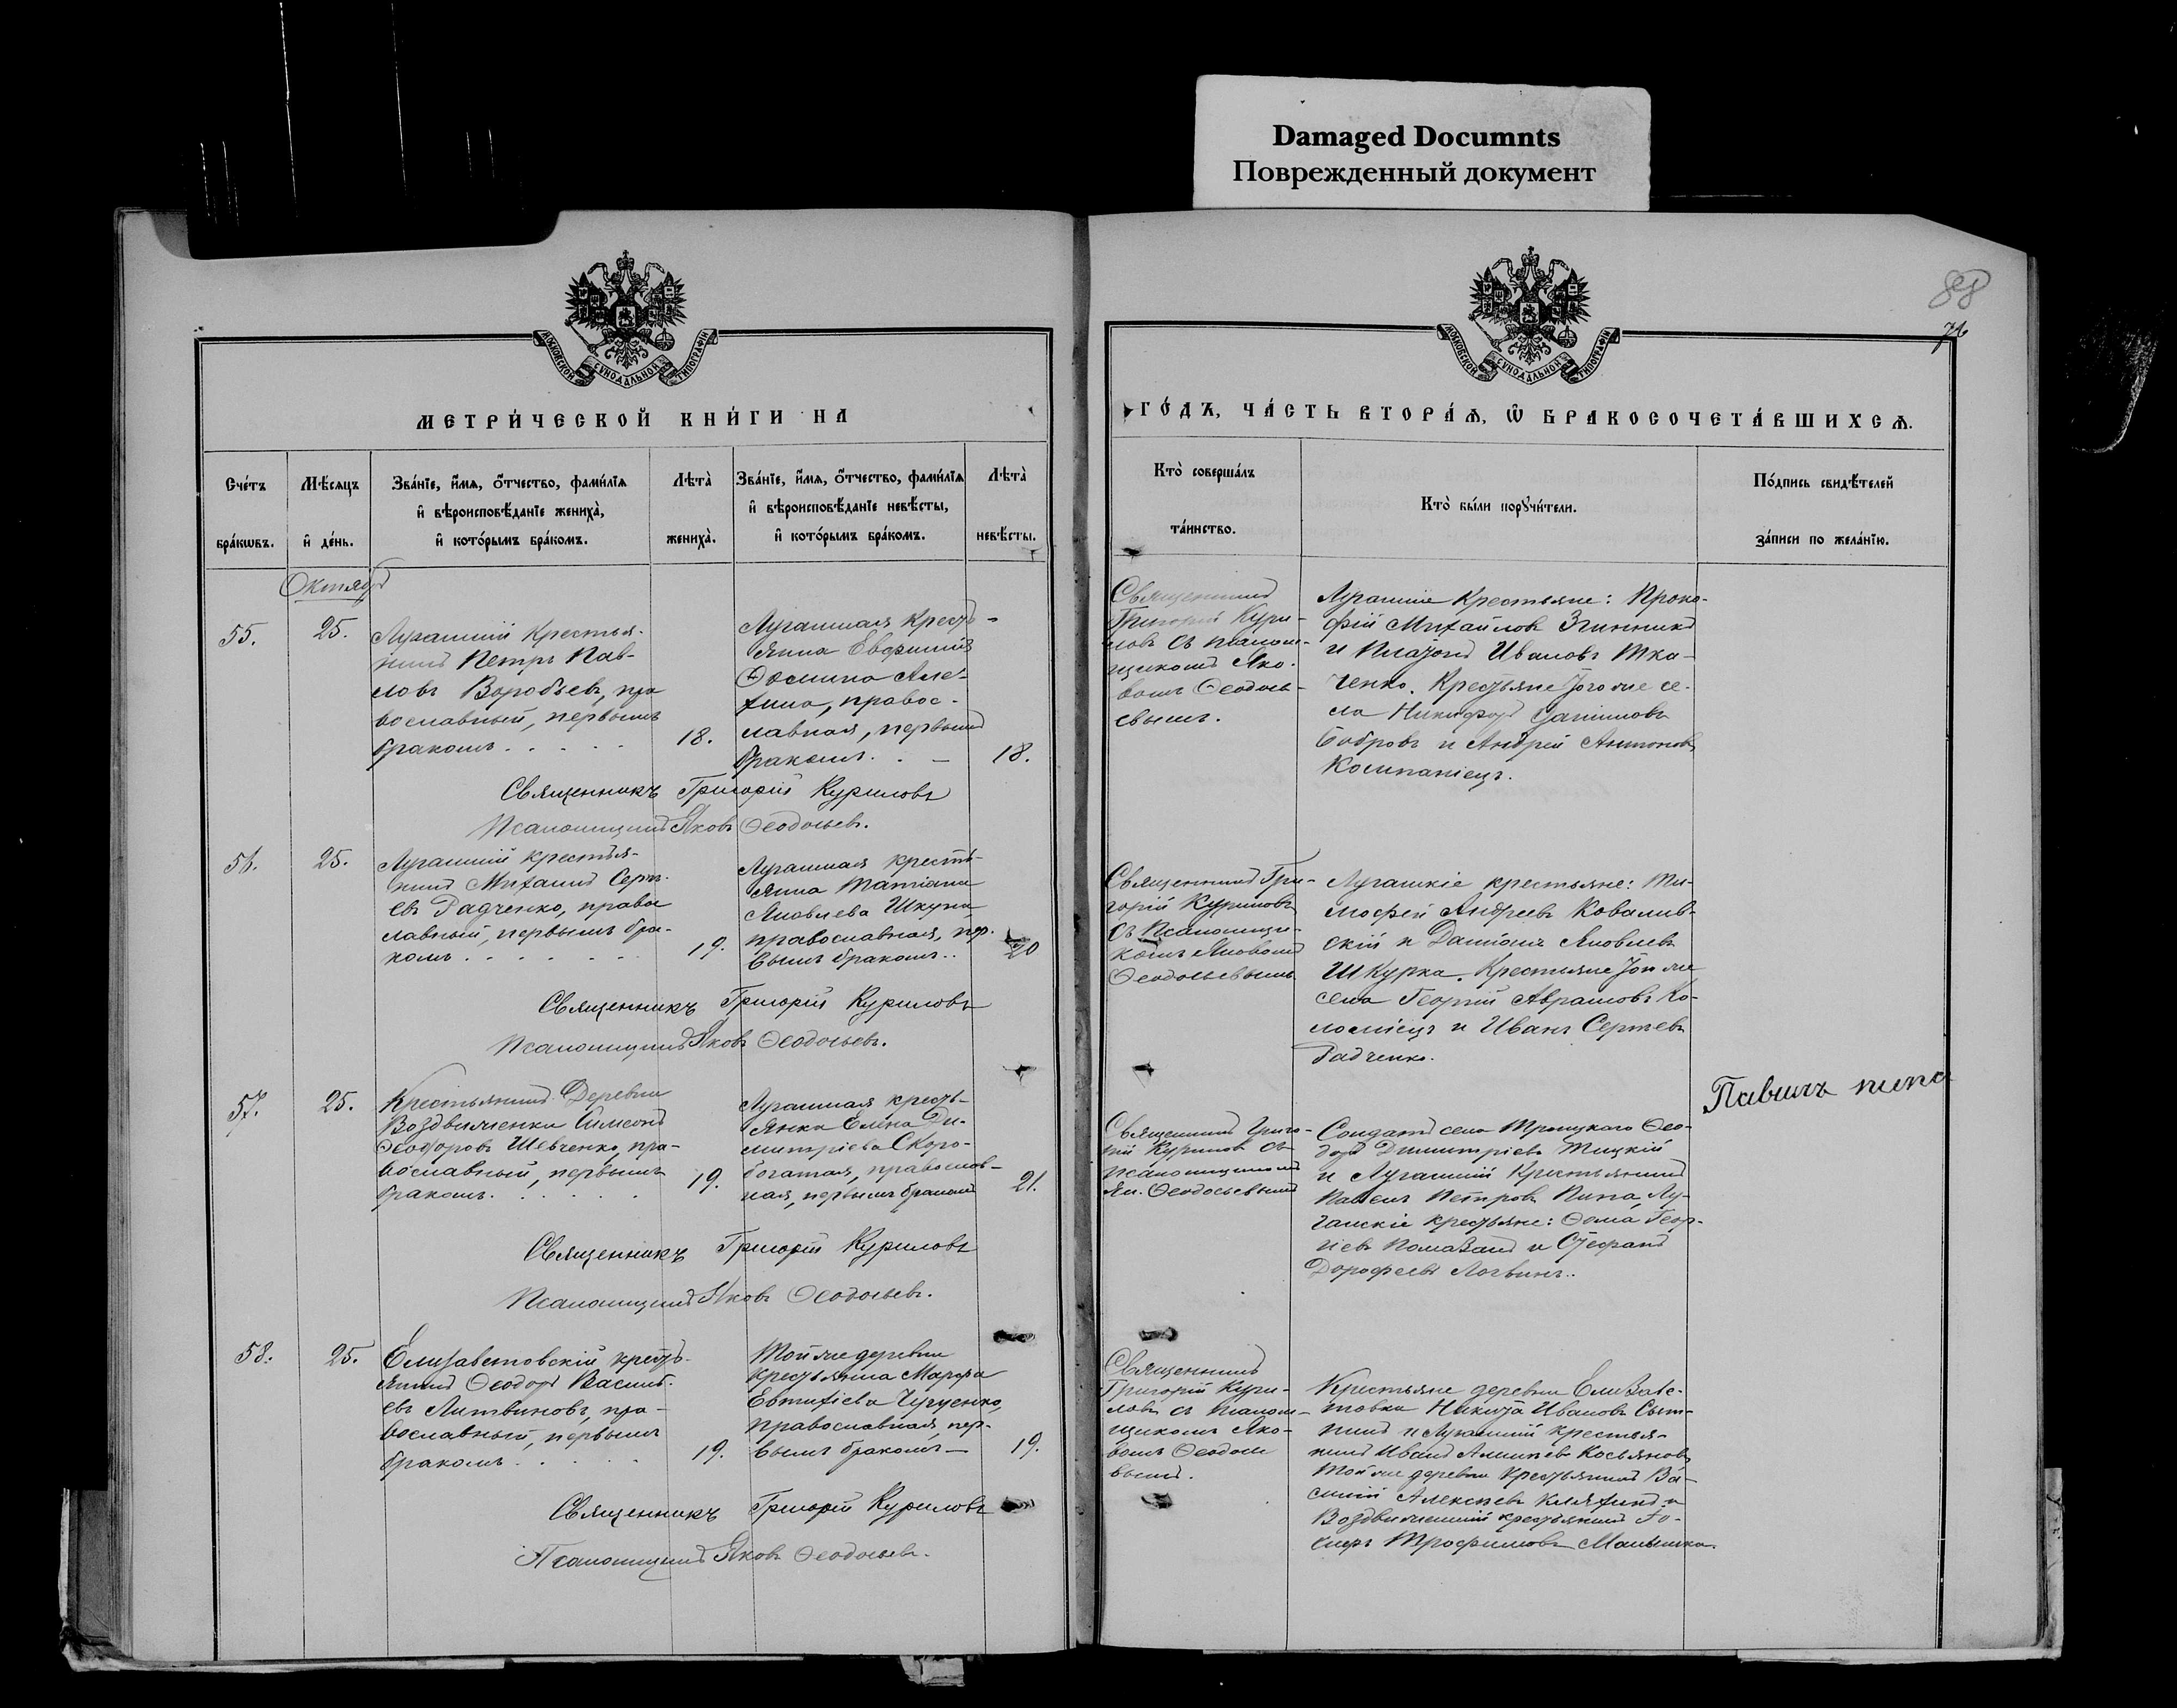 Damaged Documnts
Поврежденный документ
88
МОСКОВСКОЙ СУНОДАЛЬНОЙ ТИПОГРАФІИ
МОСКОВСКОЙ СУНОДАЛЬНОЙ ТИПОГРАФІИ
МЕТРИ́ЧЕСКОЙ КНИ́ГИ НА
ГО́ДЪ, ЧА́СТЬ ВТОРА́Ѧ, Ѽ БРАКОСОЧЕТА́ВШИХСѦ.
Сче́тъ
бра́кѡвъ.
Мѣ́сяцъ
и҆ де́нь.
Зва́нїе, и҆́мѧ, ѻ҆́тчество, фами́лїѧ
и҆ вѣроисповѣ́данїе жениха̀,
и҆ кото́рымъ бра́комъ.
Лѣта̀
жениха̀.
Зва́нїе, и҆́мѧ, ѻ҆́тчество, фами́лїѧ
и҆ вѣроисповѣ́данїе невѣ́сты,
и҆ кото́рымъ бра́комъ.
Лѣта̀
невѣ́сты.
Кто̀ соверша́лъ
та́инство.
Кто̀ бы́ли порꙋчи́тели.
По́дпись свидѣ́телей
за́писи по жела́нїю.
Октябрь
55.
25.
Луганскій крестья-
нинъ Петръ Пав-
ловъ Воробьевъ, пра
вославный, первымъ
бракомъ . . . . .
18.
Луганская кресть-
янка Евфимія
Ѳомина
, правос-
лавная, первымъ
бракомъ. . —
18.
Священникъ
Григорій Кури-
ловъ съ псалом-
щикомъ Яко-
вомъ Ѳеодось-
евымъ.
Луганскіе крестьяне: Проко-
фій Михайловъ
и Платонъ Ивановъ Тка-
ченко. Крестьяне того же се-
ла Никифоръ
Бобровъ и Андрей Антоновъ
Компаніецъ.
Священникъ Григорій Куриловъ
Псаломщикъ Яковъ Ѳеодосьевъ.
56.
25.
Луганскій крестья-
нинъ Михаилъ Серг-
евъ Радченко, правос
лавный, первымъ бра-
комъ . . . . . . .
19.
Луганская кресть-
янка Татіана
Яковлева Шкурка,
православная, пер-
вымъ бракомъ..
20
Священникъ Гри-
горій Куриловъ
съ Псаломщи-
комъ Яковомъ
Ѳеодосьевымъ
Луганскіе крестьяне: Ти-
мофей Андреевъ Ковалив-
скій и Даміанъ Яковлевъ
Шкурка. Крестьяне того же
села Георгій Аврамовъ Ко-
ломіецъ и Иванъ Сергеевъ
Радченко.
Священникъ Григорій Куриловъ
Псаломщикъ Яковъ Ѳеодосьевъ.
57.
25.
Крестьянинъ Деревни
Воздвиженки Симеонъ
Ѳеодоровъ Шевченко, пра-
вославный, первымъ
бракомъ. . . . . .
19.
Луганская кресть-
янка Елена Ди-
митріева Скоро-
богатая, православ-
ная, первымъ бракомъ
21.
Священникъ Григо-
рій Куриловъ съ
псаломщикомъ
Як. Ѳеодосьевымъ
Солдатъ села Троицкаго Ѳео-
доръ Димитріевъ Тицкій
и Луганскій Крестьянинъ
Павелъ Петровъ Пипа, Лу-
ганскіе крестьяне: Ѳома Геор-
гіевъ Помазанъ и Стефанъ
Дорофеевъ Логвинъ..
Павилъ пипа
Священникъ Григорій Куриловъ
Псаломщикъ Яковъ Ѳеодосьевъ.
58.
25.
Елизаветовскій кресть-
янинъ Ѳеодоръ Васил-
евъ Литвиновъ, пра-
вославный, первымъ
бракомъ . . . . .
19.
Той же деревни
крестьянка Марфа
Евтихіева
православная, пер-
вымъ бракомъ —
19.
Священникъ
Григорій Кури-
ловъ съ псалом-
щикомъ Яко-
вомъ Ѳеодосье
вымъ.
Крестьяне деревни Елизаве-
товки Никита Ивановъ Сыт-
никъ и Луганскій крестья-
нинъ Иванъ Косьяновъ
Той же деревни крестьянинъ Ва-
силій Алексеевъ и
Воздвиженскій крестьянинъ Іо-
сифъ Трофимовъ Малышко.
Священникъ Григорій Куриловъ
Псаломщикъ Яковъ Ѳеодосьевъ.